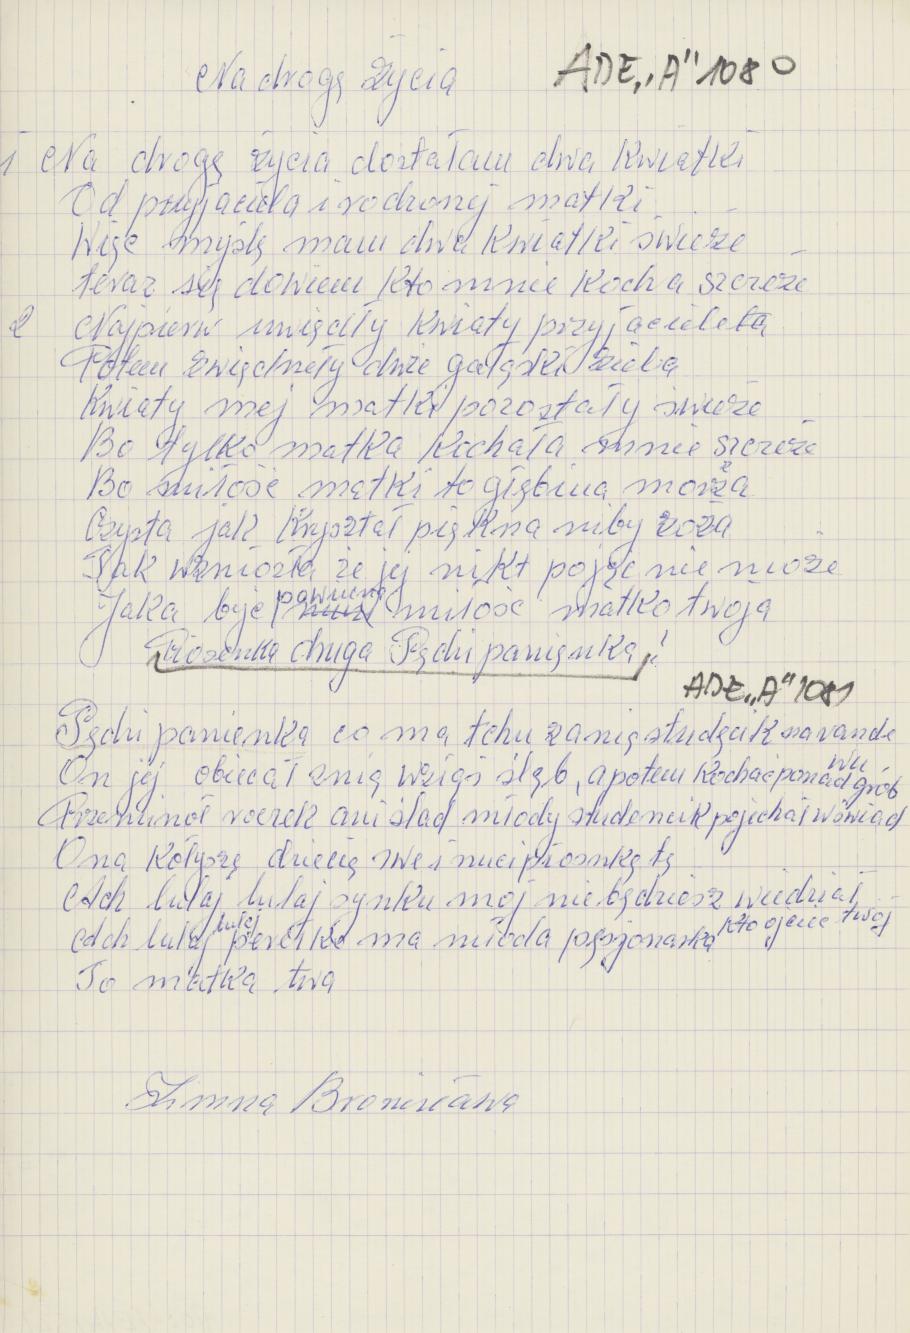 Na drogę życia ADE „A" 1080
1 Na drogę życia dostałam dwa kwiatki
Od przyjaciela i rodzonej matki
Więc myślę mam dwa kwiatki świeże
teraz się dowiem kto mnie kocha szczeże
2 Najpierw uwiędły kwiaty przyjaciela
Potem zwiędnęły dwie gałąski ziela
Kwiaty mej matki pozostały świeże
Bo tylko matka kochała mnie szczeże
Bo miłość matki to głębina morza
Czysta jak kryształ piękna niby zoża
Tak wzniosła że jej nikt pojąc nie może
Jaka być powinna miłość matko twoja
Piosenka druga Pędzi panięnka!
ADE „A" 1081
Pędzi panienka co ma tchu za nią studęcik na rande
wu
On jej obiecał z nią wziąś ślub, a potem kochać ponad grób
Przeminoł roczek ani ślad młody studencik pojechał w świad
Ona kołyszę dziecię swe i nuci piosnkę tę
Ach lulaj lulaj synku moj nie będziesz wiedział
kto ojciec twoj
Ach lulaj lulej perełko ma młoda pęsjonarka
To matka twa
Zimna Bronisława